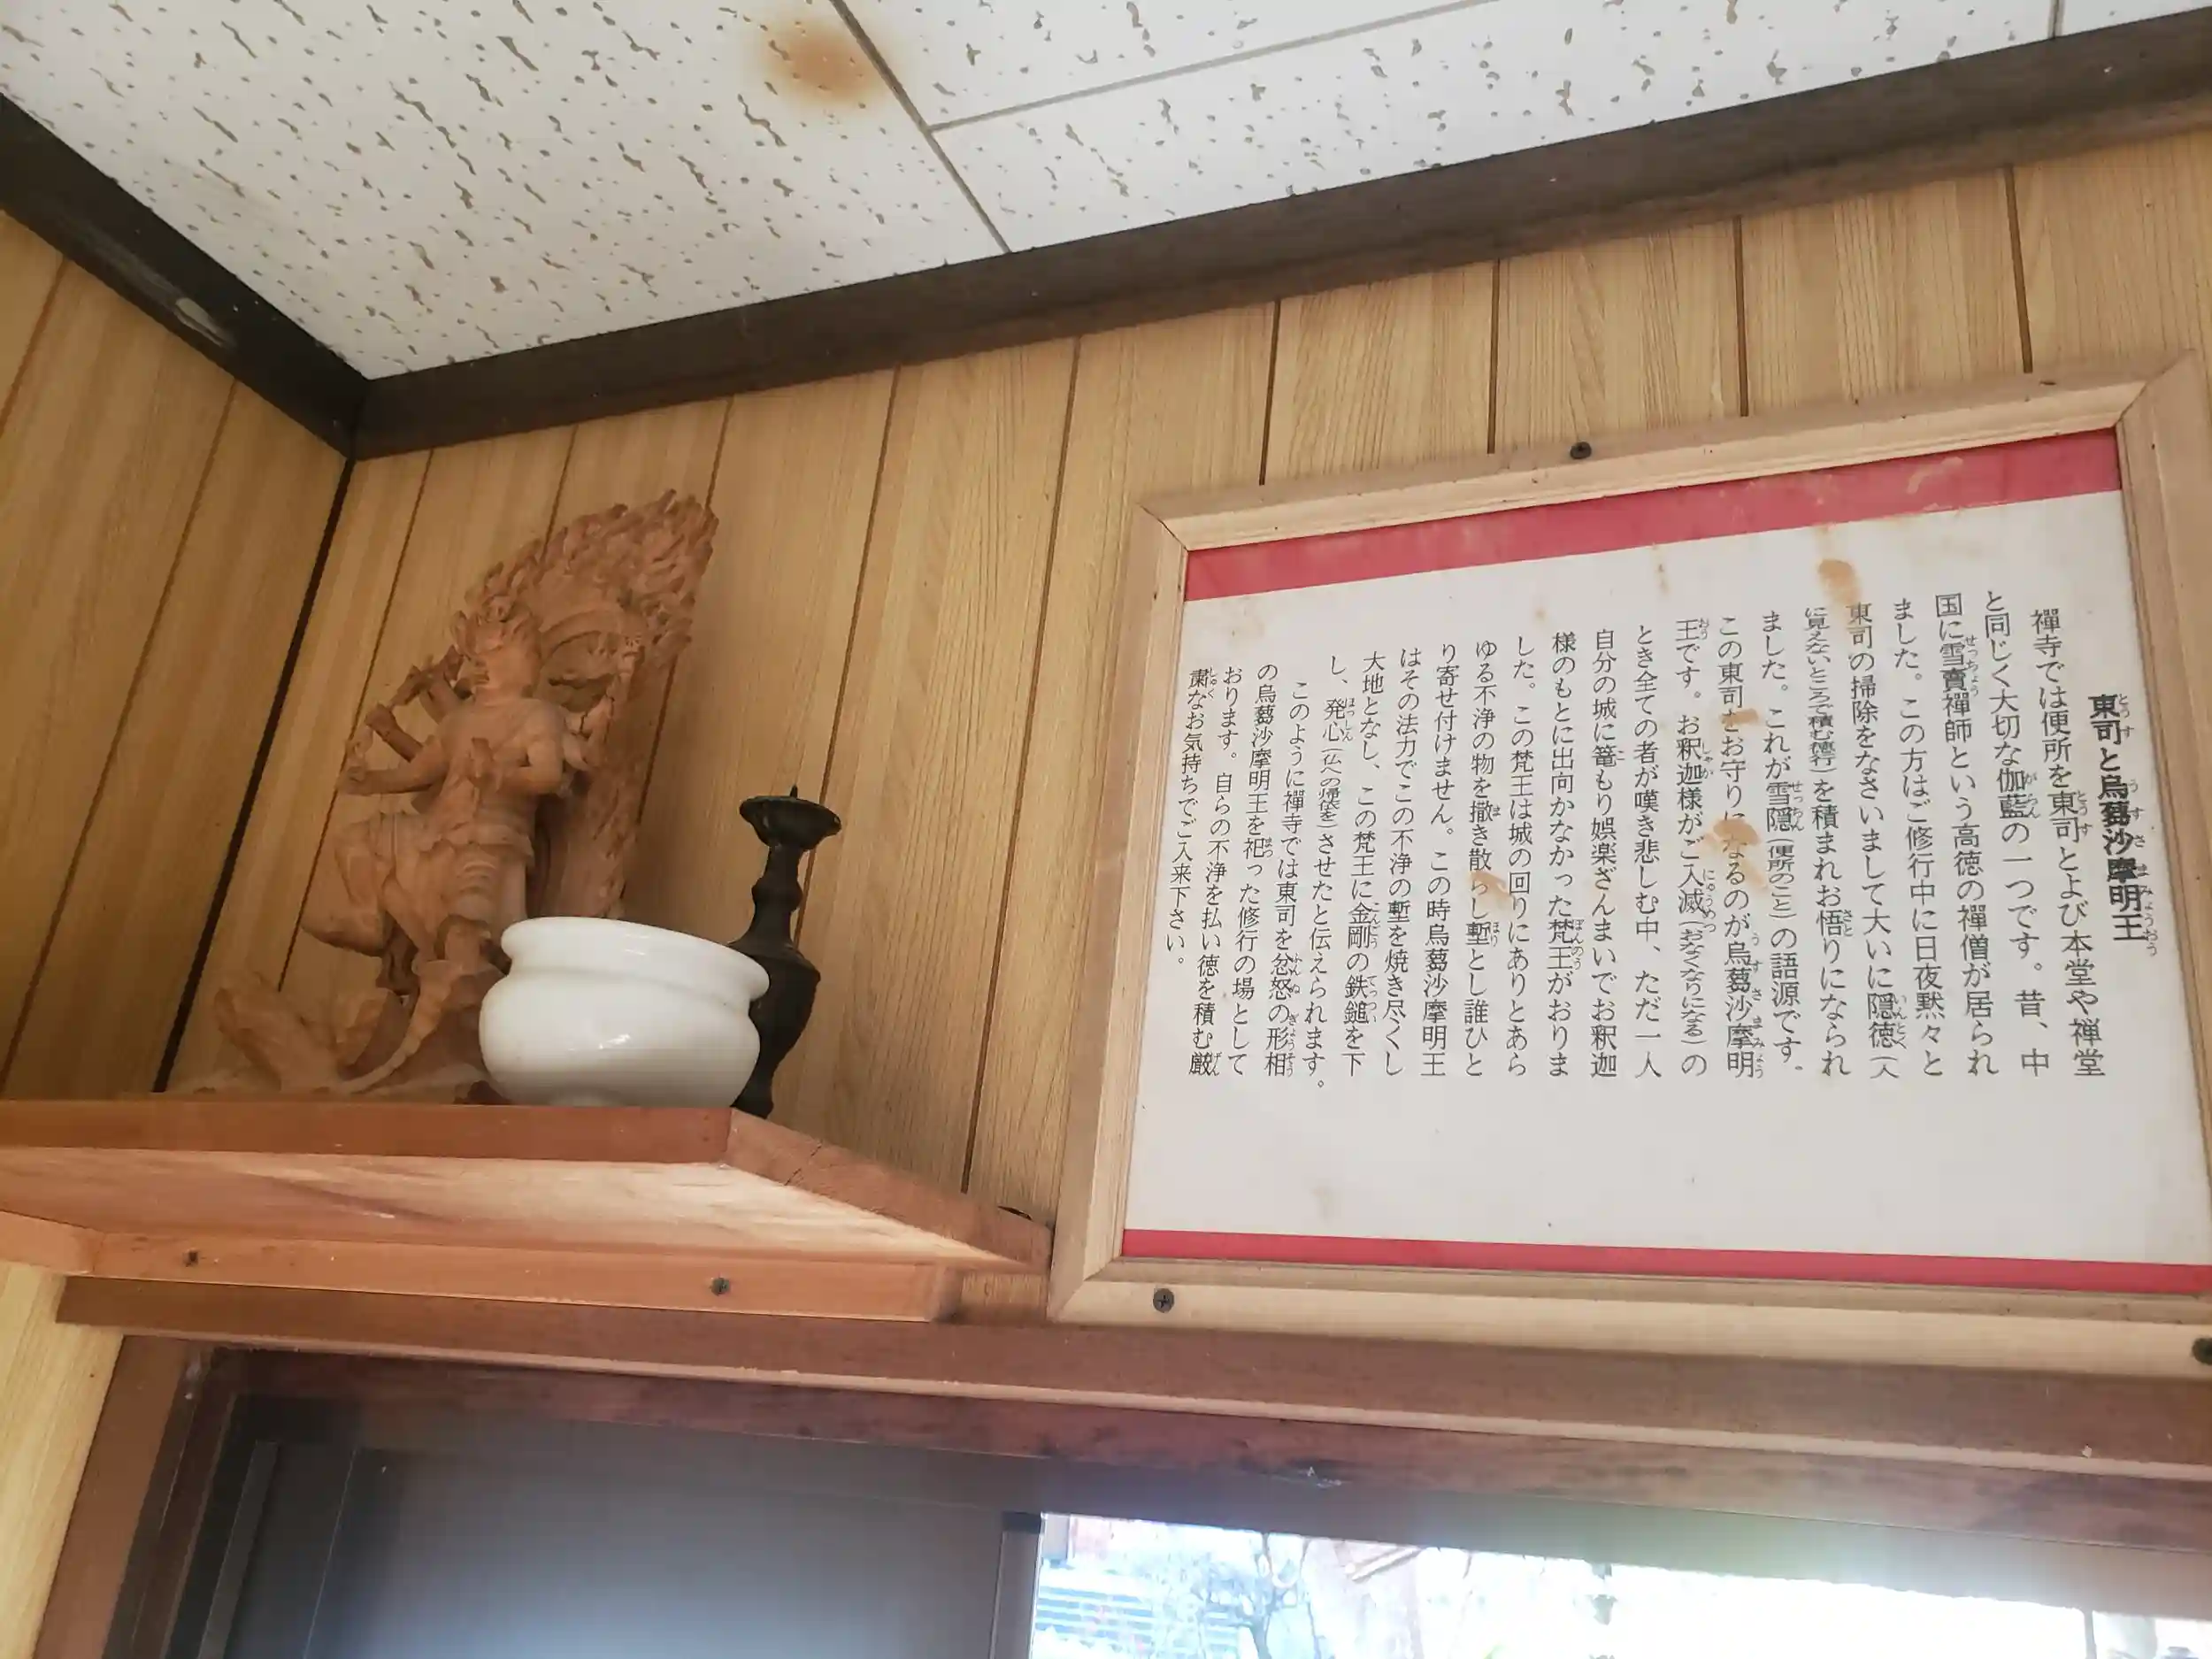 東司と烏蒭沙摩明王
禪寺では便所を東司とよび本堂や禅堂
と同じく大切な伽藍の一つです。昔、中
国に雪竇禪師という高徳の禪僧が居られ
ました。この方はご修行中に日夜黙々と
東司の掃除をなさいまして大いに隠徳（人
に見えないところで積む德行）を積まれお悟りになられ
ました。これが雪隠（便所のこと）の語源です。
この東司をお守りになるのが烏蒭沙摩明
王です。お釈迦様がご入滅（おなくなりになる）の
とき全ての者が嘆き悲しむ中、ただ一人
自分の城に篭もり娯楽ざんまいでお釈迦
様のもとに出向かなかった梵王がおりま
した。この梵王は城の回りにありとあら
ゆる不浄の物を撒き散らし塹とし誰ひと
り寄せ付けません。この時烏蒭沙摩明王
はその法力でこの不浄の塹を焼き尽くし
大地となし、この梵王に金剛の鉄鎚を下
し、発心（仏への帰依を）させたと伝えられます。
このように禪寺では東司を忿怒の形相
の烏蒭沙摩明王を祀った修行の場として
おります。自らの不浄を払い徳を積む厳
粛なお気持ちでご入来下さい。